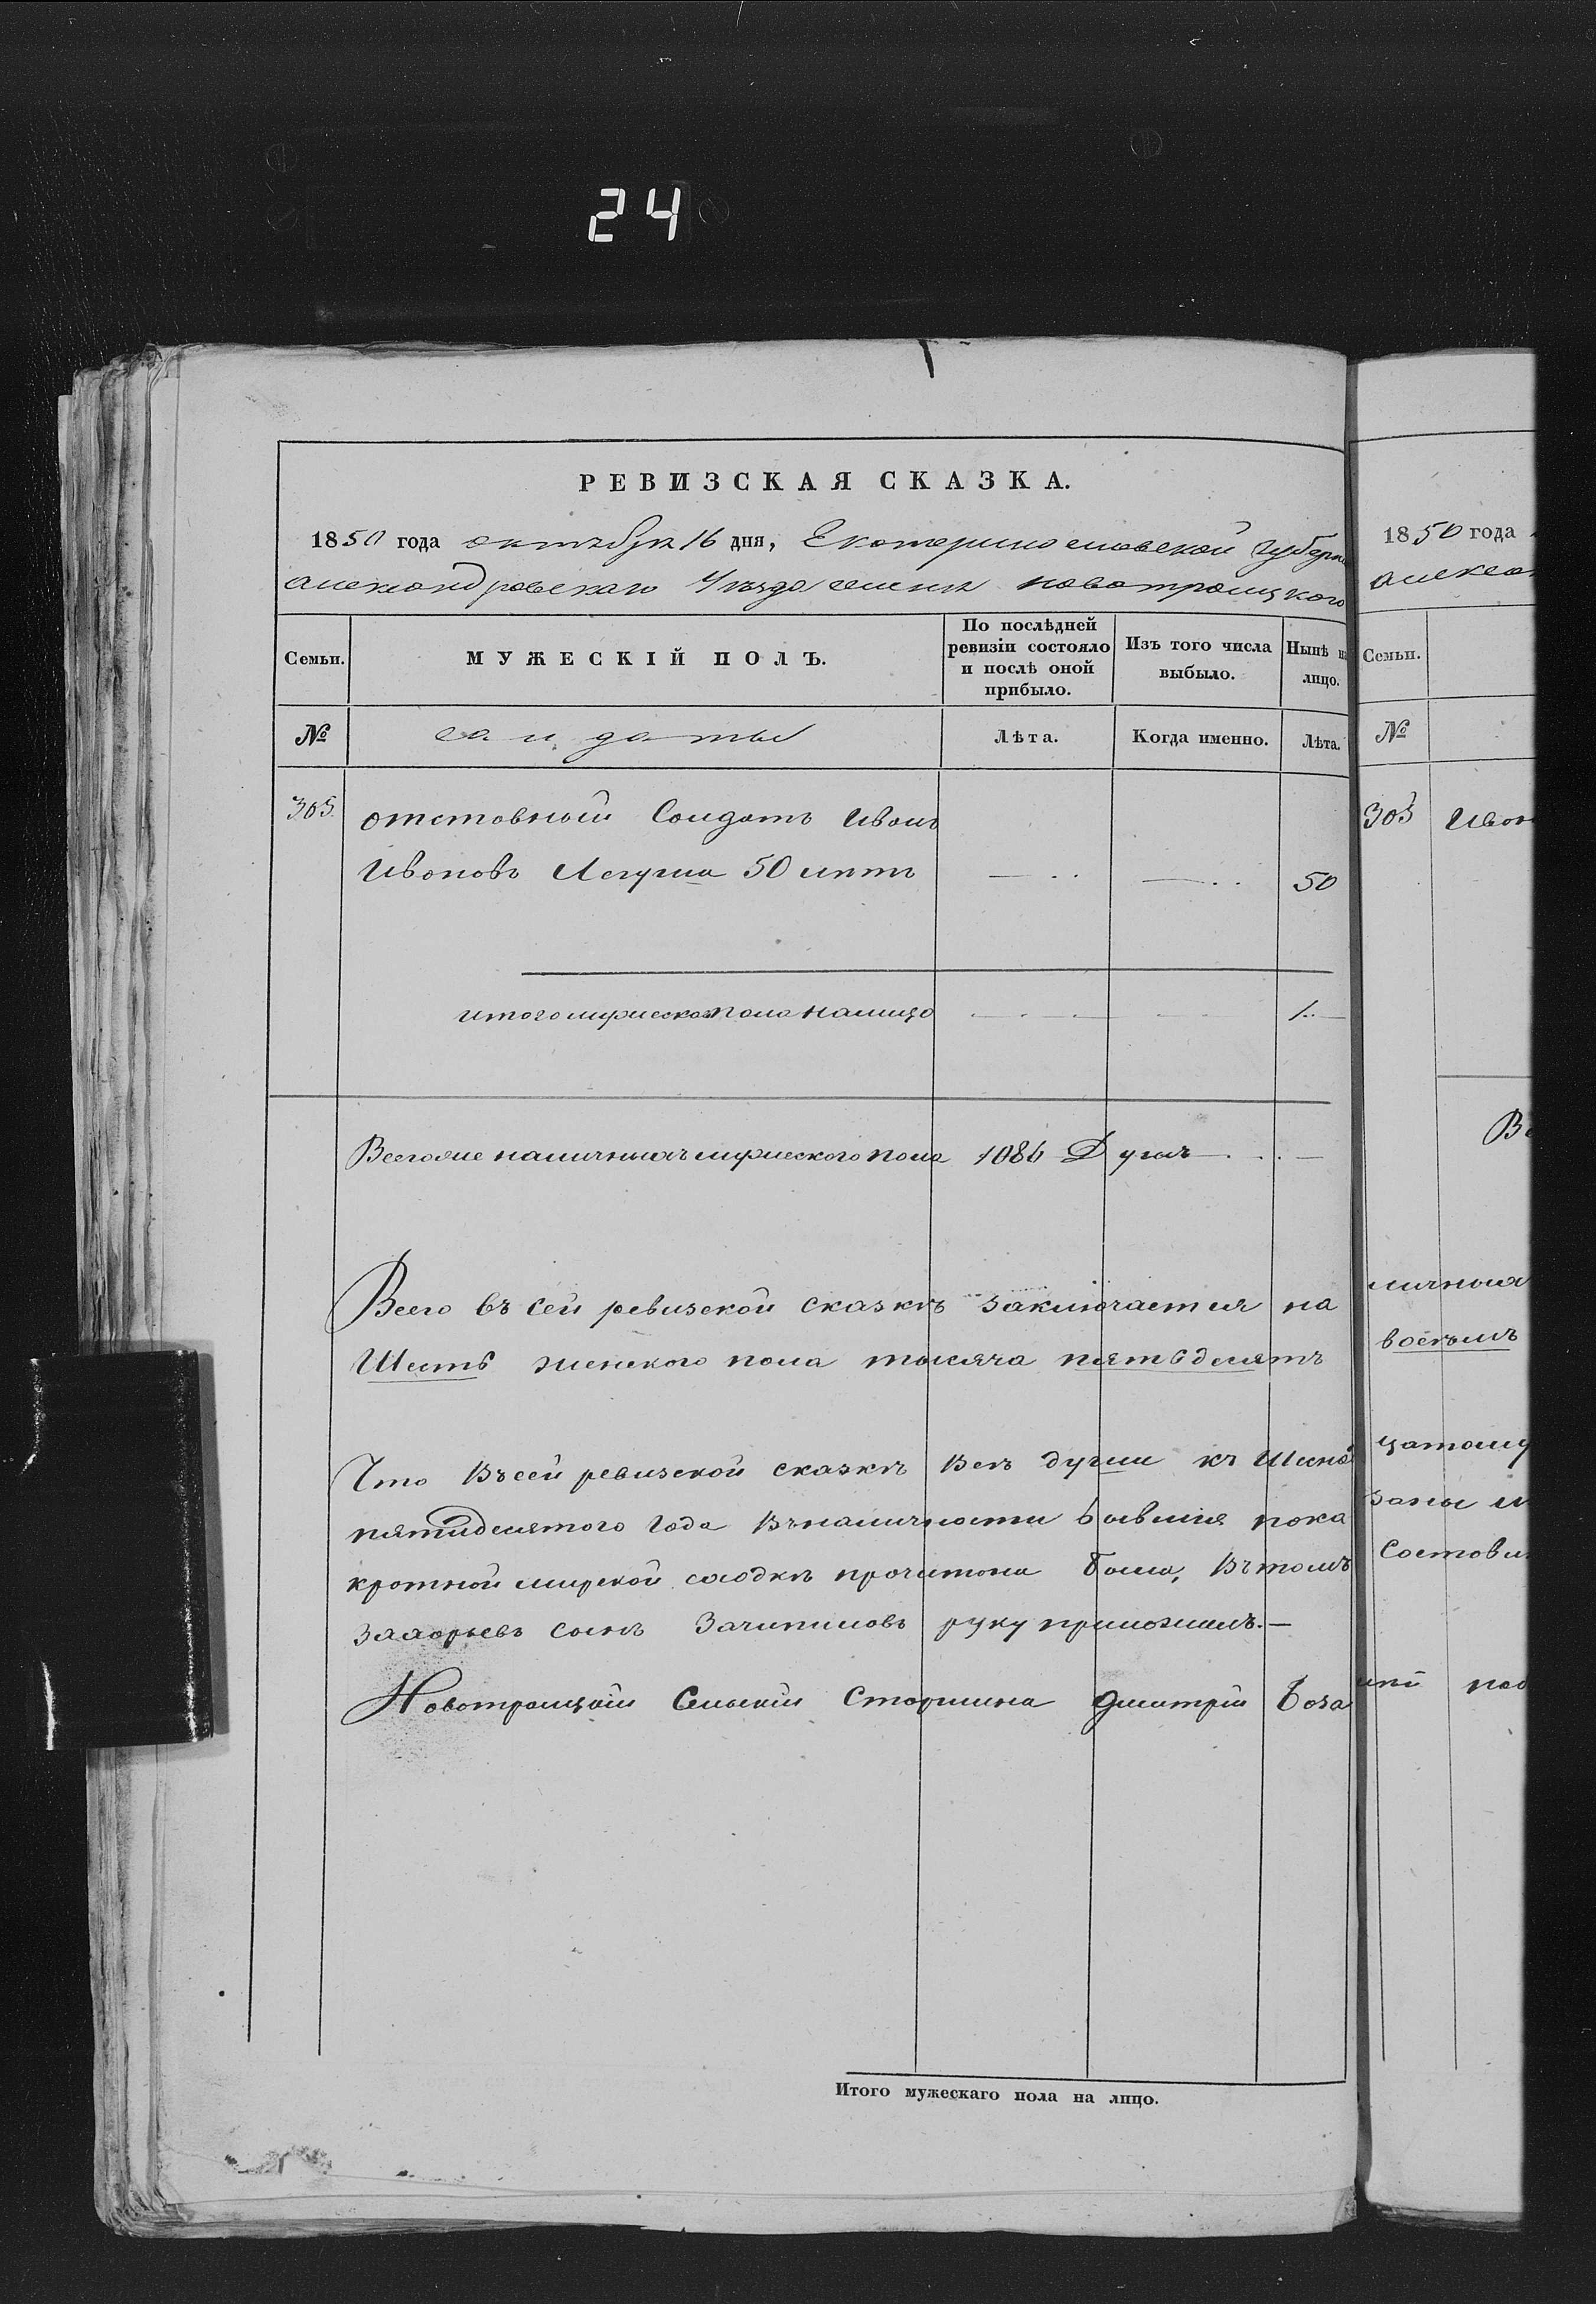 24
РЕВИЗСКАЯ СКАЗКА.
1850 года октября 16 дня, Екатеринославской Губерн
александровскаго Уезда селения новотроицкого
Семьи.
МУЖЕСКІЙ ПОЛЪ.
По послѣдней ревизіи состояло и послѣ оной прибыло.
Изъ того числа выбыло.
Нынѣ на лицо.
№
салдаты
Лѣта.
Когда именно.
Лѣта.
305
отставной Солдатъ Иванъ
Ивановъ 50 летъ
50
итого мужеска пола налицо
1
Всегоже наличныхъ мужеского пола 1086 Душъ
Всего въ сей ревизской сказке заключается на
Шесть женского пола тысяча пятьдесятъ
Что Въсей ревизской сказке Все души къ
пятидесятого Года Вналичности бывшия пока
кратной мирской сходке прочитана была, Вътомъ
Захарьевъ сынъ руку приложилъ.
Новотроицкій Сельскій Старшина Дмитрій
Итого мужескаго пола на лицо.
1850 года
алексан
Семьи.
№
305 Иван
Вс
личныхъ
восемь
цатому
заны и
Состови